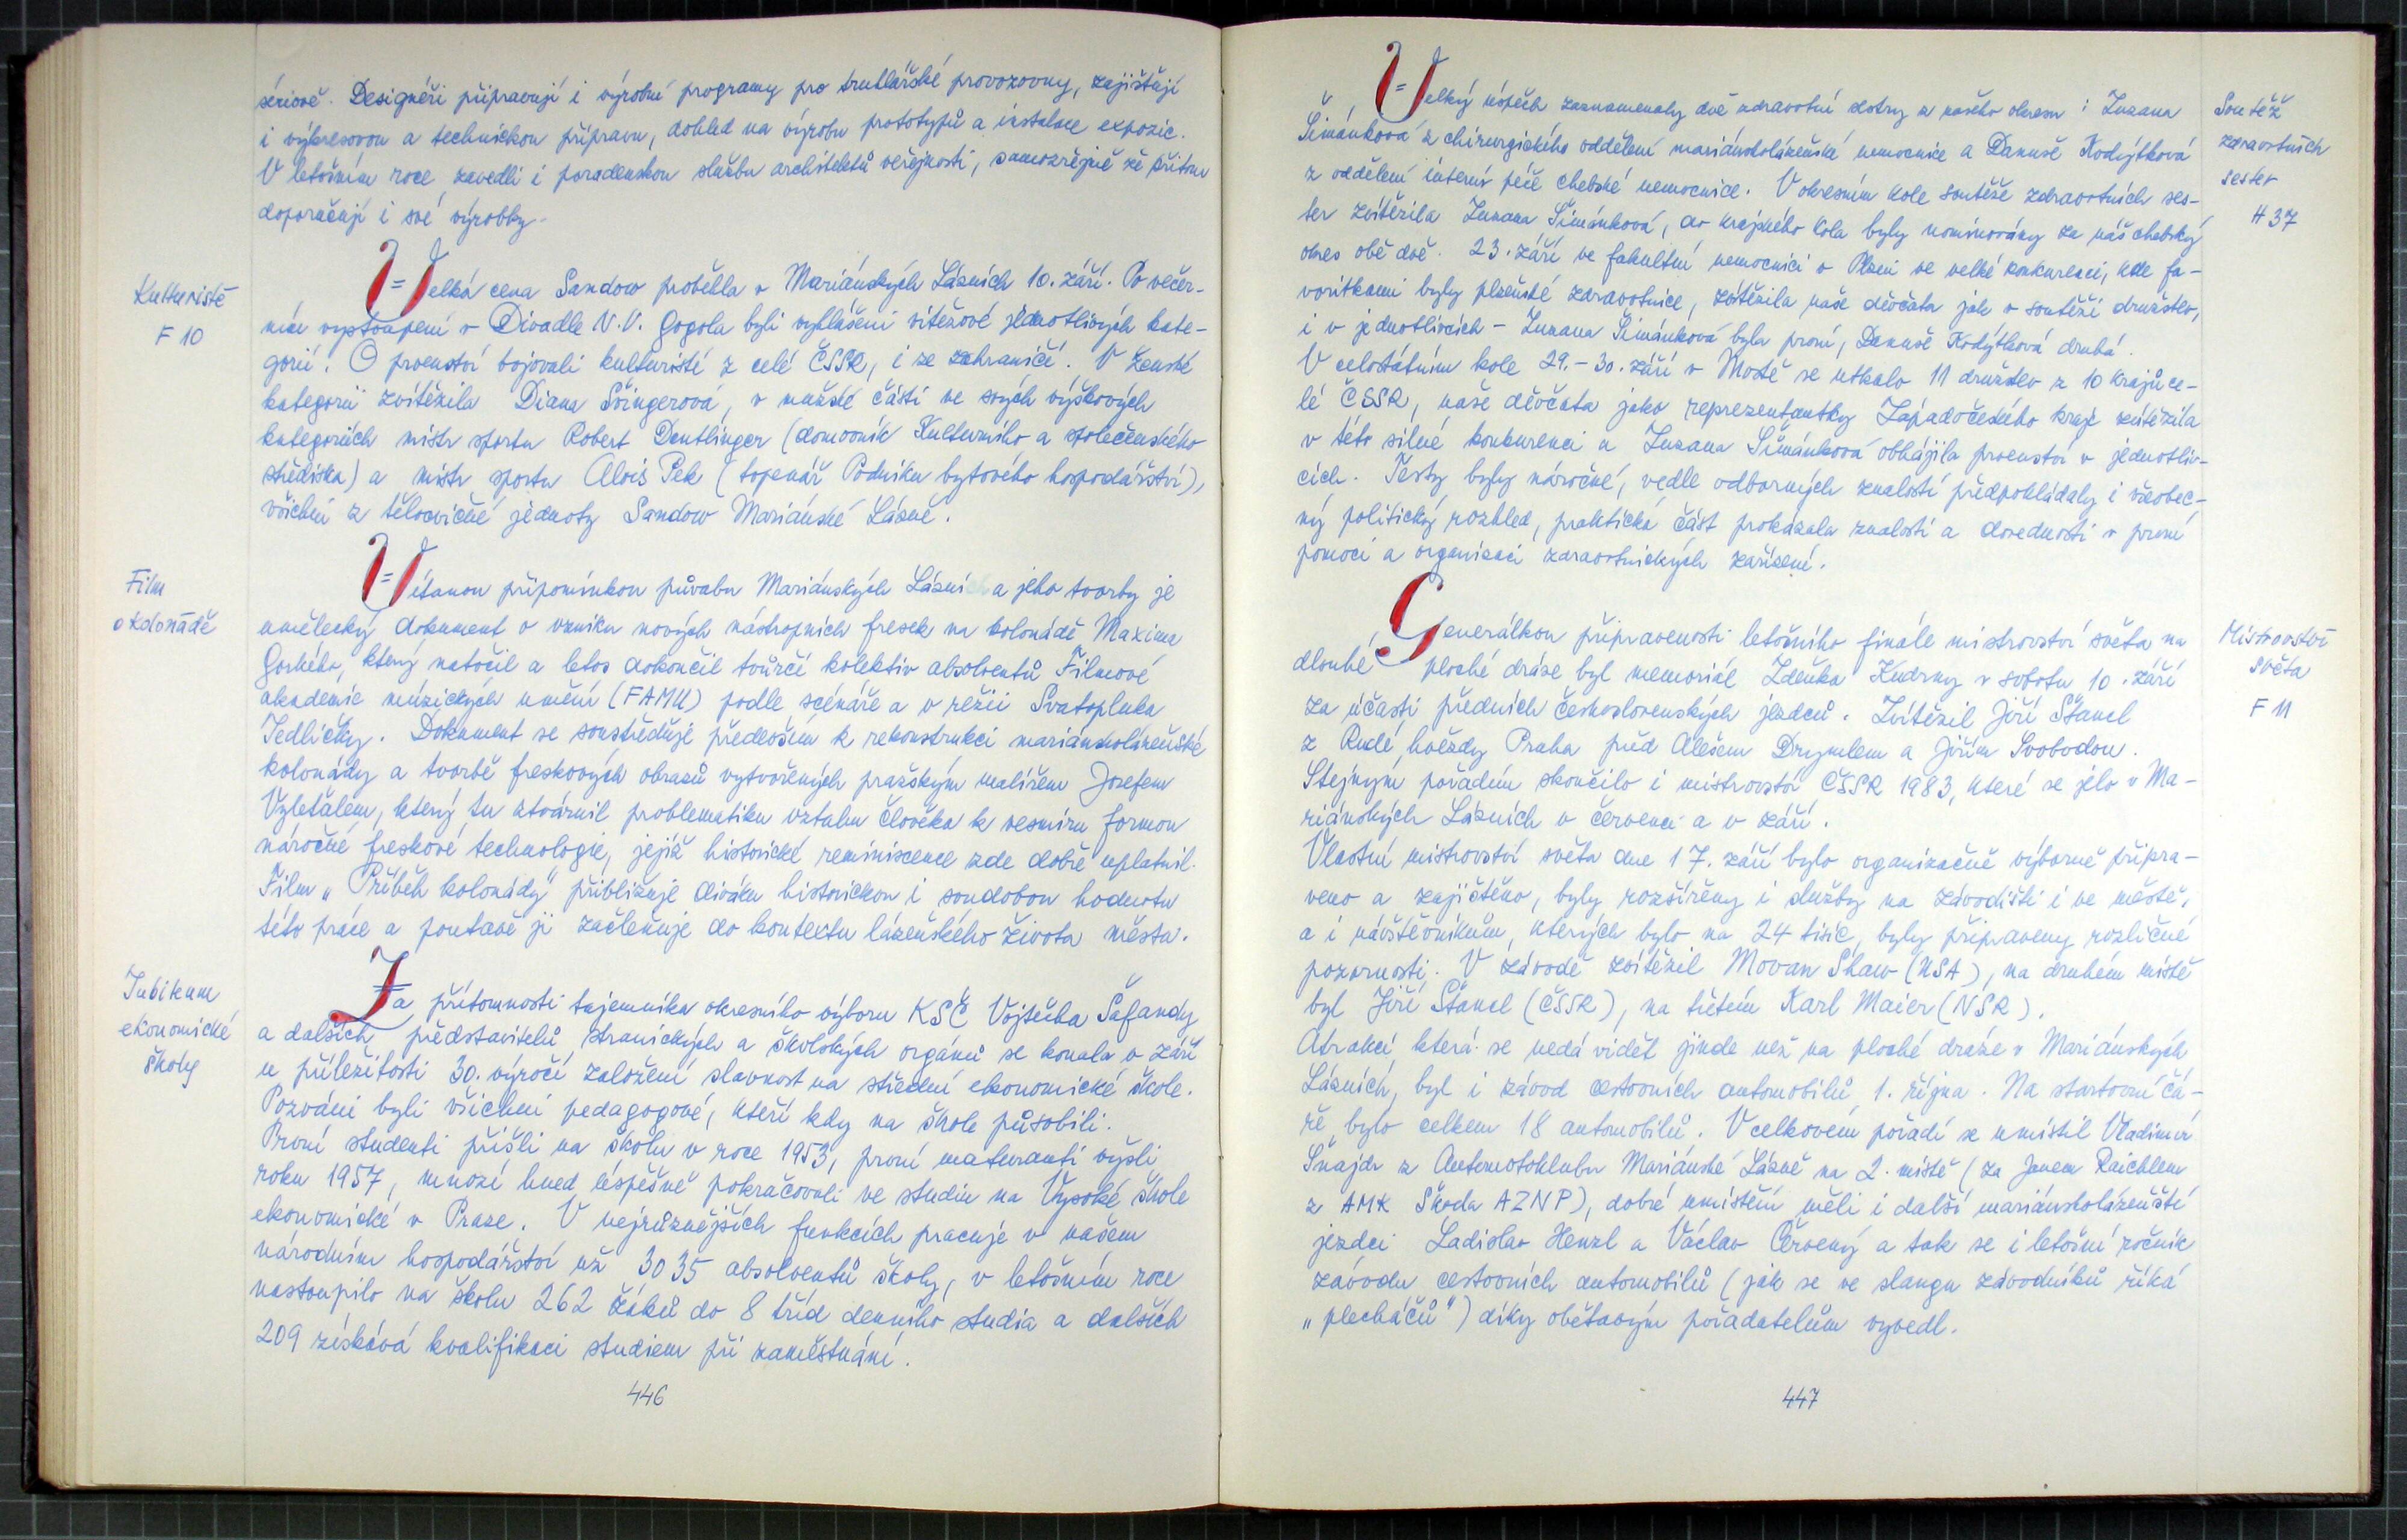 sériově. Designéři připravují i výrobní programy pro truhlářské provozovny, zajištují
i výkresovou a technickou přípravu, dohled na výrobu prototypů a instalace expozic.
V letošním roce zavedli i poradenskou službu architektů veřejnosti, samozřejmě že přitom
doporučují i své výrobky.
Kulturisté
F 10
Velká cena Sandow proběhla v Mariánských Lázních 10. září. Po večer-
ním vystoupení v Divadle N.V. Gogola byli vyhlášeni vítězové jednotlivých kate-
gorií. O prvenství bojovali kulturisté z celé ČSSR, i ze zahraničí. V ženské
kategorii zvítězila Diana Švingerová, v mužské části ve svých výškových
kategoriích mistr sportu Robert Dentlinger (domovník Kulturního a společenského
střediska) a mistr sportu Alois Pek (topenář Podniku bytového hospodářství),
všichni z tělocvičné jednoty Sandow Mariánské Lázně.
Film
o kolonádě
Vítanou připomínkou půvabu Mariánských Lázní a jeho tvorby je
umělecký dokument o vzniku nových nástropních fresek na kolonádě Maxima
Gorkého, který natočil a letos dokončil tvůrčí kolektiv absolventů Filmové
akademie múzických umění (FAMU) podle scénáře a v režii Svatopluka
Jedličky. Dokument se soustřeďuje především k rekonstrukci mariánskolázeňské
kolonády a tvorbě freskových obrazů vytvořených pražským malířem Josefem
Vyleťalem, který tu ztvárnil problematiku vztahu člověka k vesmíru formou
náročné freskové technologie, jejíž historické reminiscence zde dobře uplatnil.
Film „Příběh kolonády" přibližuje diváku historickou i soudobou hodnotu
této práce a poutavě ji začleňuje do kontextu lázeňského života města.
Jubileum
ekonomické
školy
Za přítomnosti tajemníka okresního výboru KSČ Vojtěcha Šafandy
a dalších představitelů stranických a školských orgánů se konala v září
u příležitosti 30. výročí založení slavnost na střední ekonomické škole.
Pozváni byli všichni pedagogové, kteří kdy na škole působili.
První studenti přišli na školu v roce 1953, první maturanti vyšli
roku 1957, mnozí hned úspěšně pokračovali ve studiu na Vysoké škole
ekonomické v Praze. V nejrůznějších funkcích pracuje v našem
národním hospodářství už 3035 absolventů školy, v letošním roce
nastoupilo na školu 262 žáků do 8 tříd denního studia a dalších
209 získává kvalifikaci studiem při zaměstnání.
446
Velký úspěch zaznamenaly dvě zdravotní sestry z našeho okresu: Zuzana
Šimánková z chirurgického oddělení mariánskolázeňské nemocnice a Danuše Kodýtková
z oddělení interní péče chebské nemocnice. V okresním kole soutěže zdravotních ses-
ter zvítězila Zuzana Šimánková, do krajského kola byly nominovány za náš chebský
okres obě dvě. 23. září ve fakultní nemocnici v Plzni ve velké konkurenci, kde fa-
voritkami byly plzeňské zdravotnice, zvítězila naše děvčata jak v soutěži družstev,
i v jednotlivcích – Zuzana Šimánková byla první, Danuše Kodýtková druhá.
V celostátním kole 29.–30. září v Mostě se utkalo 11 družstev z 10 krajů ce-
lé ČSSR, naše děvčata jako reprezentantky Západočeského kraje zvítězila
v této silné konkurenci a Zuzana Šimánková obhájila prvenství v jednotliv-
cích. Testy byly náročné, vedle odborných znalostí předpokládaly i všeobec-
ný politický rozhled, praktická část prokázala znalosti a dovednosti v první
pomoci a organizaci zdravotnických zařízení.
Soutěž
zdravotních
sester
H 37
Generálkou připravenosti letošního finále mistrovství světa na
dlouhé ploché dráze byl memoriál Zdeňka Kudrny v sobotu 10. září
za účasti předních československých jezdců. Zvítězil Jiří Štancl
z Rudé hvězdy Praha před Alešem Drymlem a Jiřím Svobodou.
Stejným pořadím skončilo i mistrovství ČSSR 1983, které se jelo v Ma-
riánských Lázních v červenci a v září.
Vlastní mistrovství světa dne 17. září bylo organizačně výborně připra-
veno a zajištěno, byly rozšířeny i služby na závodišti i ve městě,
a i návštěvníkům, kterých bylo na 24 tisíc, byly připraveny rozličné
pozornosti. V závodě zvítězil Movan Shaw (USA), na druhém místě
byl Jiří Štancl (ČSSR), na třetím Karl Maier (NSR).
Atrakcí, která se nedá vidět jinde než na ploché dráze v Mariánských
Lázních, byl i závod cestovních automobilů 1. října. Na startovní čá-
ře bylo celkem 18 automobilů. V celkovém pořadí se umístil Vladimír
Šnajdr z Automotoklubu Mariánské Lázně na 2. místě (za Janem Raichlem
z AMK Škoda AZNP), dobré umístění měli i další mariánskolázeňští
jezdci Ladislav Henzl a Václav Červený a tak se i letošní ročník
závodu cestovních automobilů (jak se ve slangu závodníků říká
„plecháčů") díky obětavým pořadatelům vyvedl.
Mistrovství
světa
F 11
447